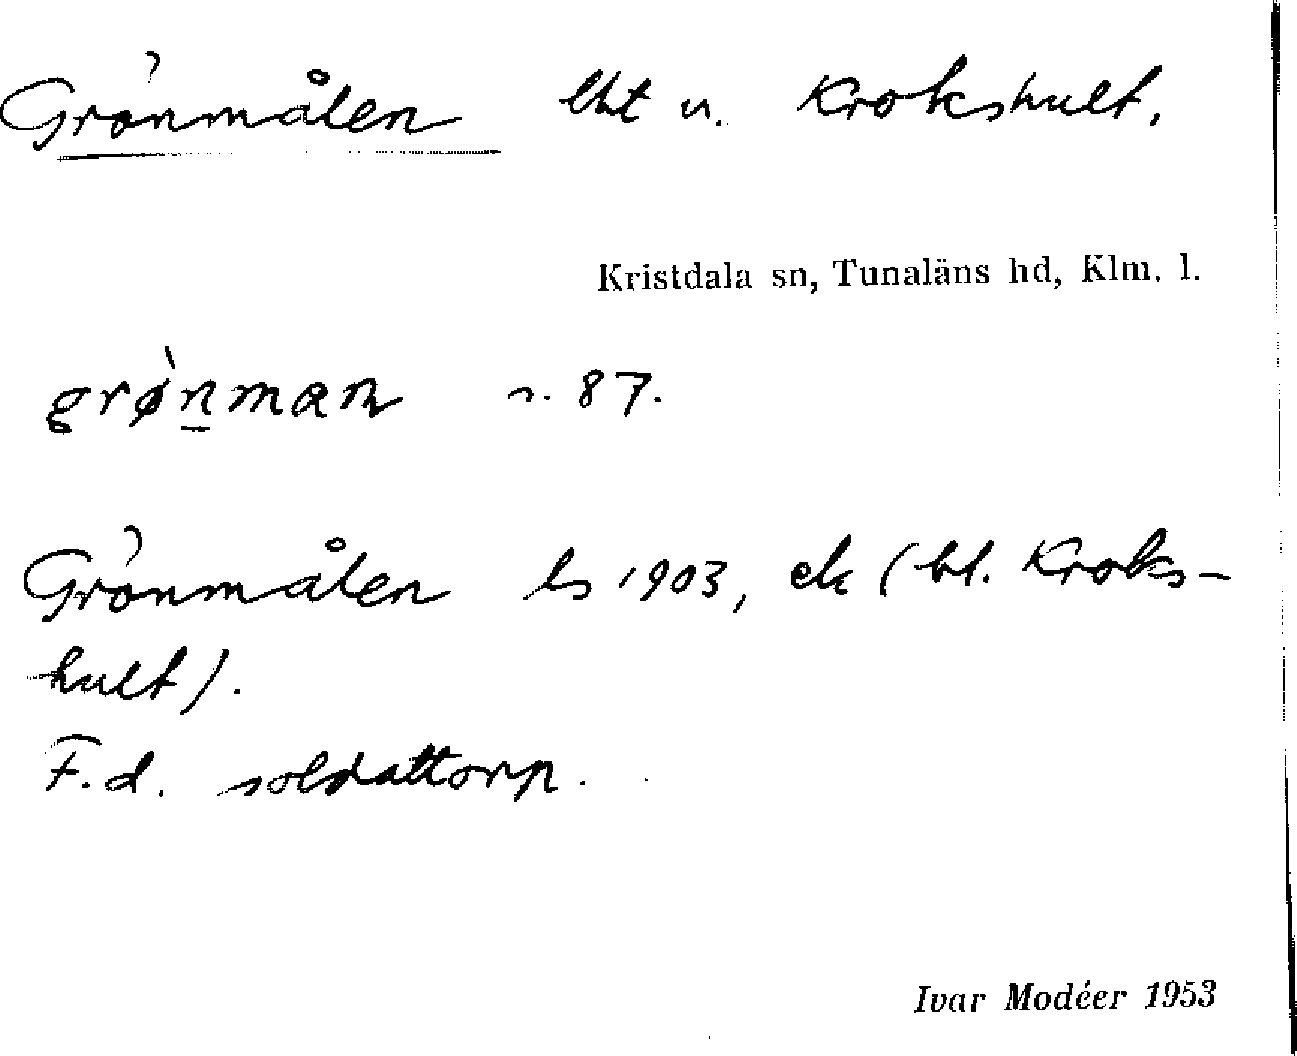 Grönmålen lht u. Krokshult.
Kristdala sn, Tunaläns hd, Klm. l.
grø̀nmaɴ s. 87.
Grönmålen ls 1903, ek (bl. Kroks-
hult).
F.d. soldattorp.
Ivar Modéer 1953